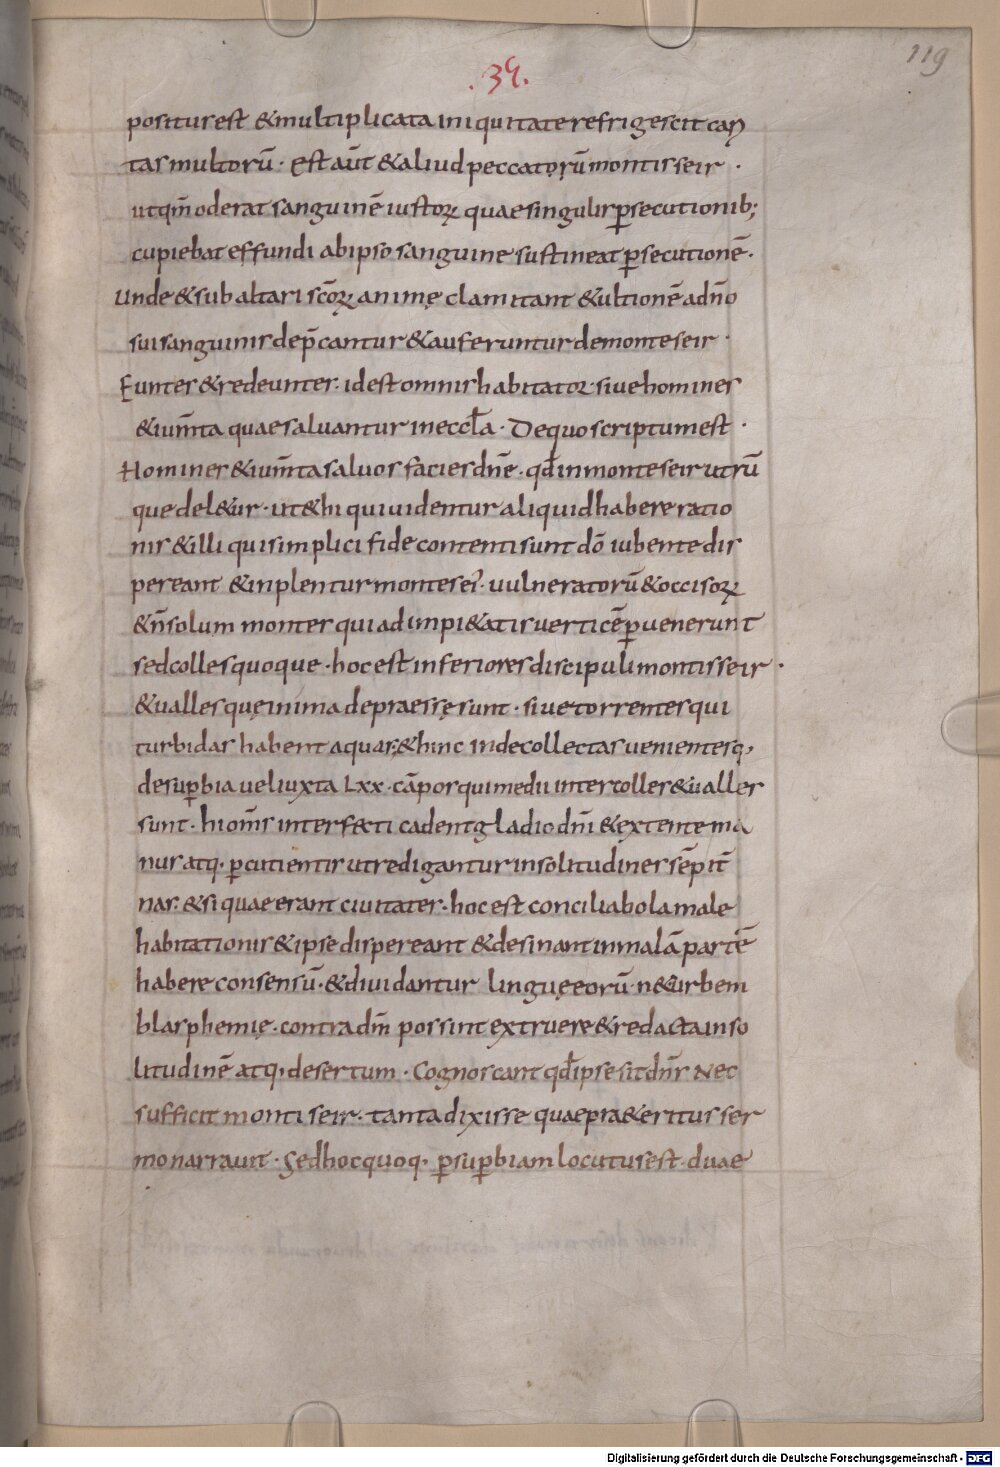 119
.39.
positus est &multiplicata iniquitate refrigescit cari
tas multorū· Est aūt &aliud peccatorū montis seir ·
ut qm̄ oderat sanguinē iustorꝝ quae singulis ꝑsecutionib;
cupiebat effundi ab ipso sanguine sustineat ꝑsecutionē·
unde &sub altari scōrꝝ animę clamitant &ultionē ad dn̄o
sui sanguinis dep̄cantur &auferuntur de monte seir ·
Euntes &redeuntes· id est omnis habitator· siue homines
&ium̄ta quae saluantur in eccl̄a· De quo scriptum est ·
Homines &ium̄ta saluos facies dn̄e· qđ in monte seir utrū
que del&ur· ut &hi qui uidentur aliquid habere ratio
nis &illi qui simplici fide contenti sunt dō iubente dis
pereant &inplentur monte seir· uulneratorū &occisorꝝ
&n̄ solum montes qui ad impi&atis uerticē ꝑuenerunt
sed colles quoque· hoc est inferiores discipuli montis seir·
&ualles quę in ima depraessę sunt· siue torrentes qui
turbidas habent aquas· &hinc inde collectas uenientesq;
de suꝑbia uel iuxta Lxx· cāpos qui medii inter colles &ualles
sunt· hi om̄s interf&ti cadent gladio dn̄i &extente ma
nus atq· ꝑcutientis ut redigantur in solitudines sēpit̄
nas· &si quae erant ciuitates· hoc est conciliabola male
habitationis &ipse dispereant &desinant in malā partē
habere consensū· &diuidantur linguę eorū· n& urbem
blasphemię· contra dm̄ possint extruere &redacta in so
litudinē atq; desertum· Cognoscant qđ ipse sit dn̄s Nec
sufficit monti seir· tanta dixisse quae pra&eritus ser
mo narrauit· Sed hoc quoq· ꝑ suꝑbiam locutus est· duae
Digitalisierung gefördert durch die Deutsche Forschungsgemeinschaft · DFG